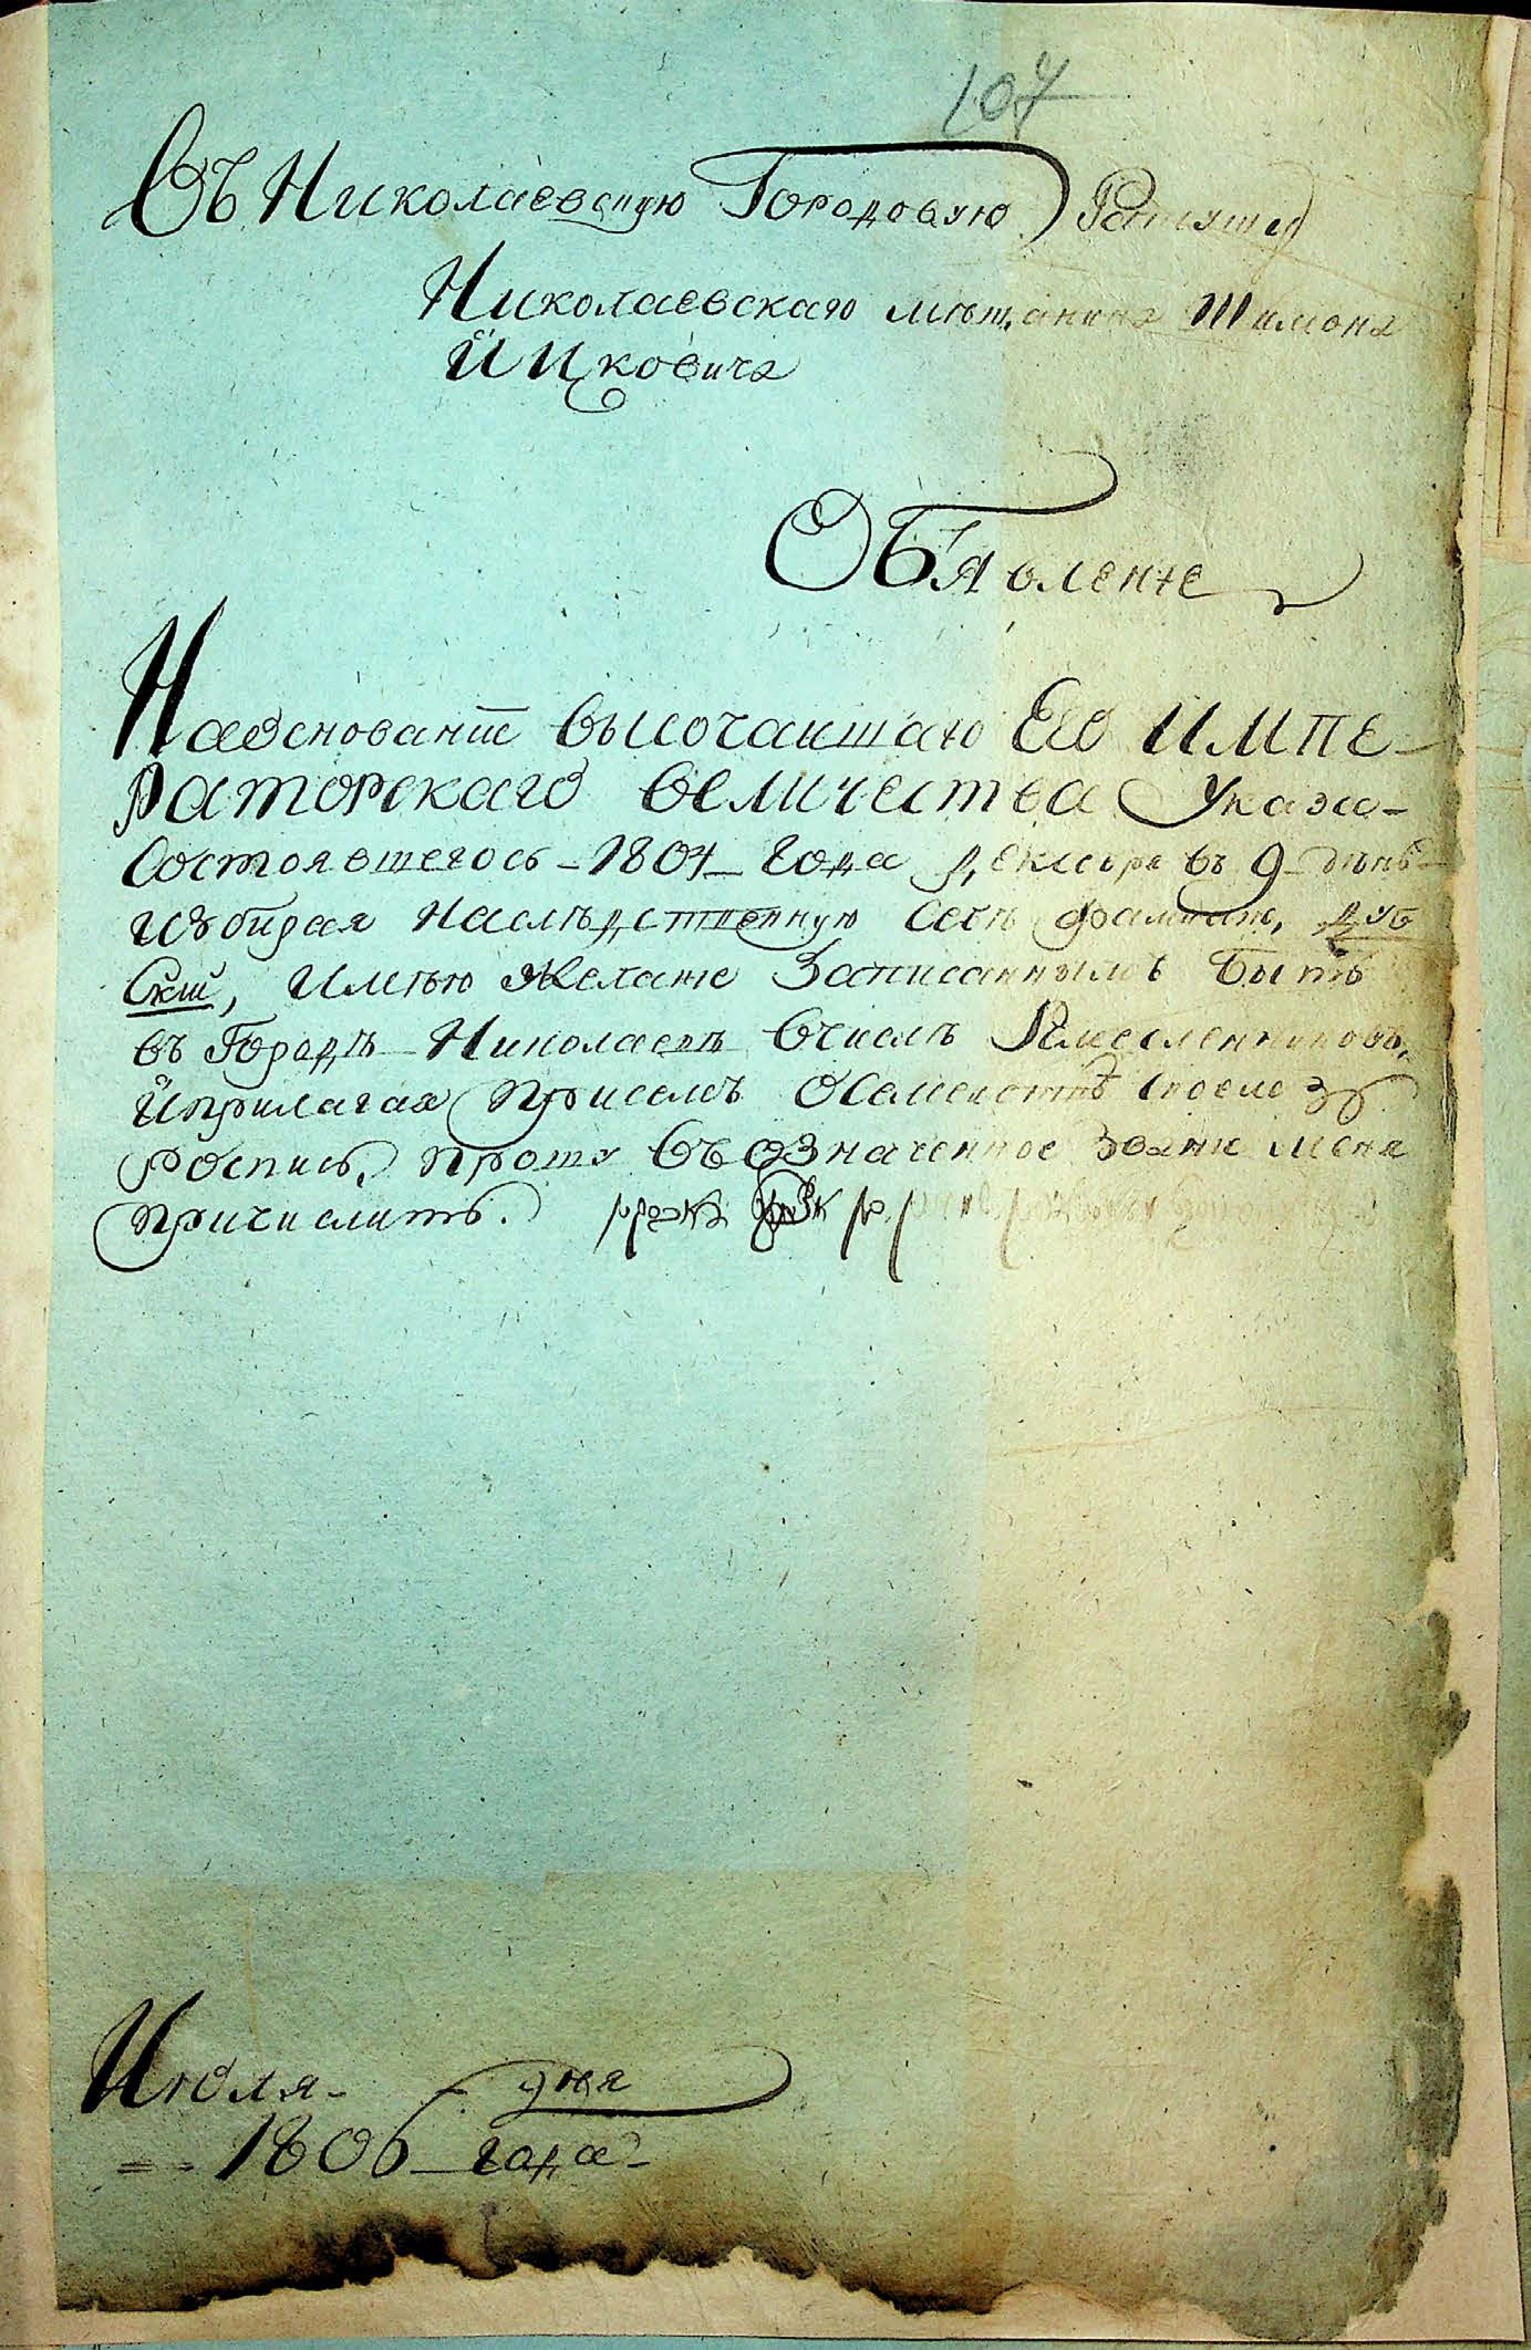 107
Въ Николаевскую Городовую Ратушу
Николаевскаго мѣщанина Шимона
Ицковича
Объявленіе
На основаніи высочаишаго Его ИМПЕ-
раторскаго величества Указа-
состоявшегось - 1804 - года декабря въ 9 - день -
избирая наслѣдственную себѣ фамилію, Дуб
скій, имѣю желаніе записаннымъ быть
въ городѣ Николаевѣ вчислѣ Ремесленниковъ,
иприлагая присемъ осемействѣ своемъ
роспись, прошу въ означенное званіе меня
причислить.
Июля - дня
1806 года -